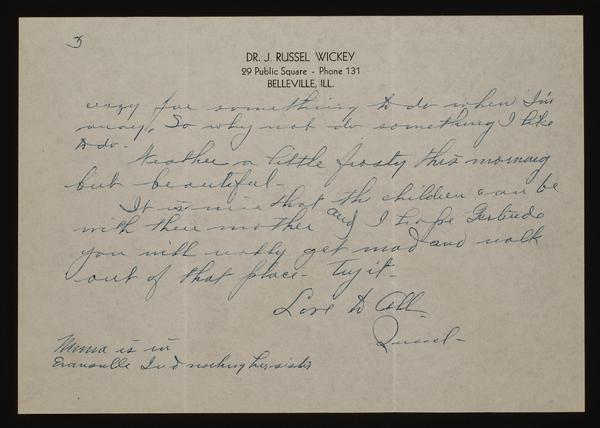 3
DR. J. RUSSEL WICKEY
29 Public Square - Phone 131
BELLEVILLE, ILL.
crazy for something to do when I'm
away. So why not do something I like
to do.
Weather a little frosty this morning
but beautiful -
It is nice that the children can be
with their mother and I hope Gertrude
you will really get mad and walk
out of that place - Try it -
Love to All
Russel -
Mima is in
Evansville Ind her sister